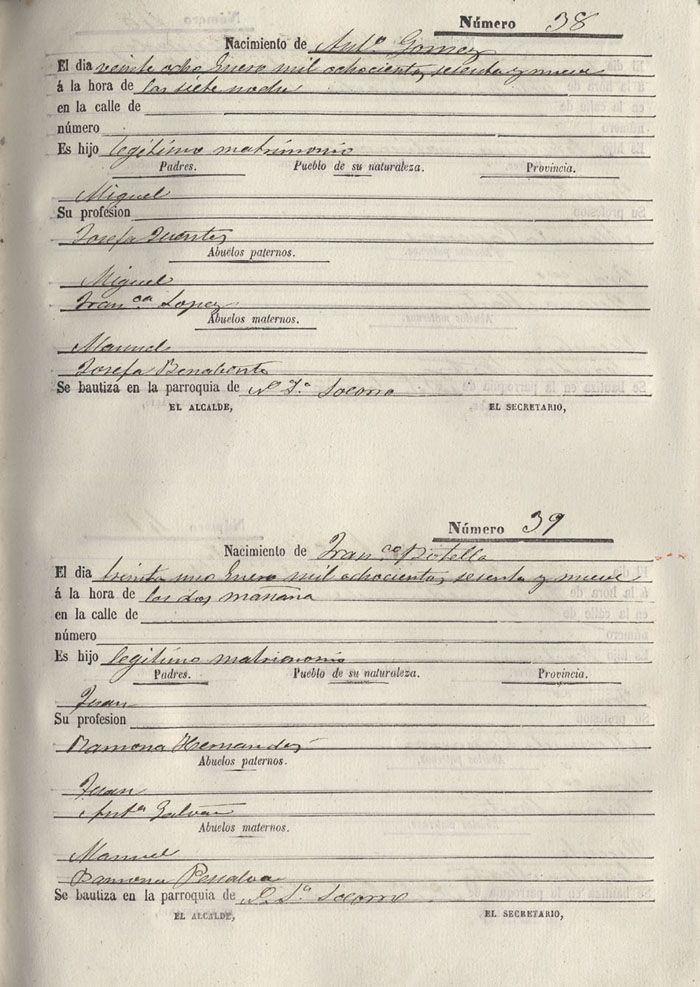 Número 38
Nacimiento de Antª Gomez
El dia veinte ocho Enero mil ochocientos sesenta y nueve
á la hora de las siete noche
en la calle de
número
Es hijo legitimo matrimonio
Padres. Pueblo de su naturaleza. Provincia.
Miguel
Su profesion
Josefa Fuentes
Abuelos paternos.
Miguel
Franca Lopez
Abuelos maternos.
Manuel
Josefa Benabente
Se bautiza en la parroquia de N. Sª Socorro
EL ALCALDE, EL SECRETARIO,
Número 39
Nacimiento de Franco Botella
El dia treinta uno Enero mil ochocientos sesenta y nueve
á la hora de las dos mañana
en la calle de
número
Es hijo legitimo matrimonio
Padres. Pueblo de su naturaleza. Provincia.
Juan
Su profesion
Ramona Hernandez
Abuelos paternos.
Juan
Antª Galvañ
Abuelos maternos.
Manuel
Ramona
Se bautiza en la parroquia de Sª Socorro
EL ALCALDE, EL SECRETARIO,